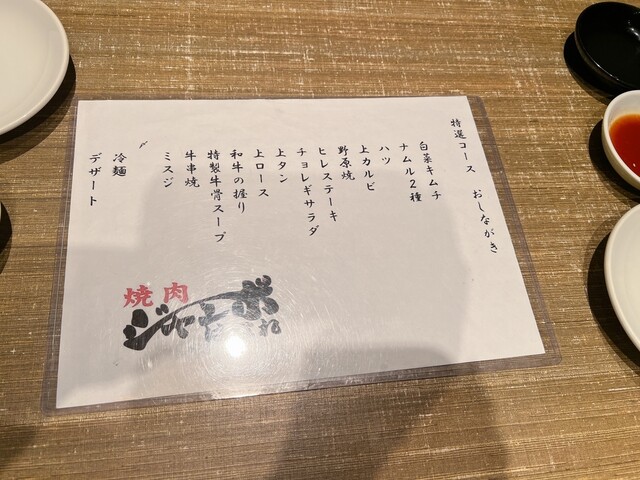 特選コース　おしながき
白菜キムチ
ナムル2種
ハツ
上カルビ
野原焼
ヒレステーキ
チョレギサラダ
上タン
上ロース
和牛の握り
特製牛骨スープ
牛串焼
ミスジ
〆
冷麺
デザート
焼肉